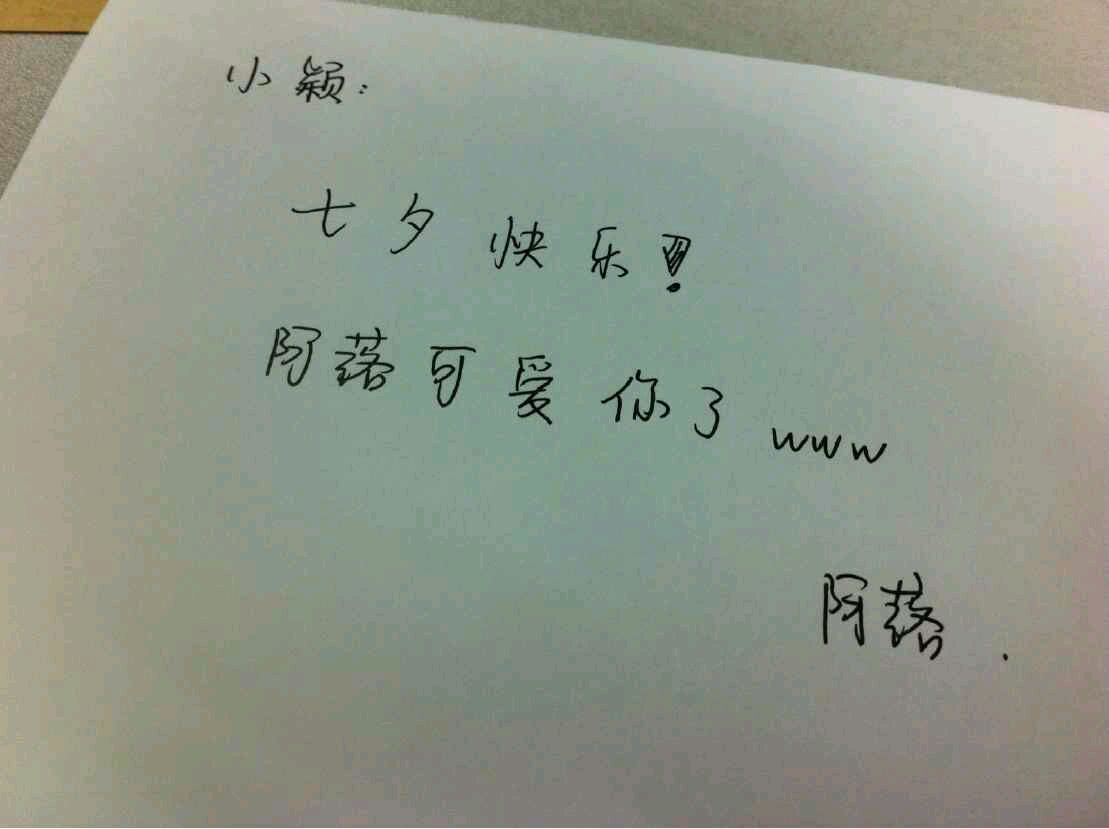 小颖:
七夕快乐!
阿落可爱你了www
阿落.